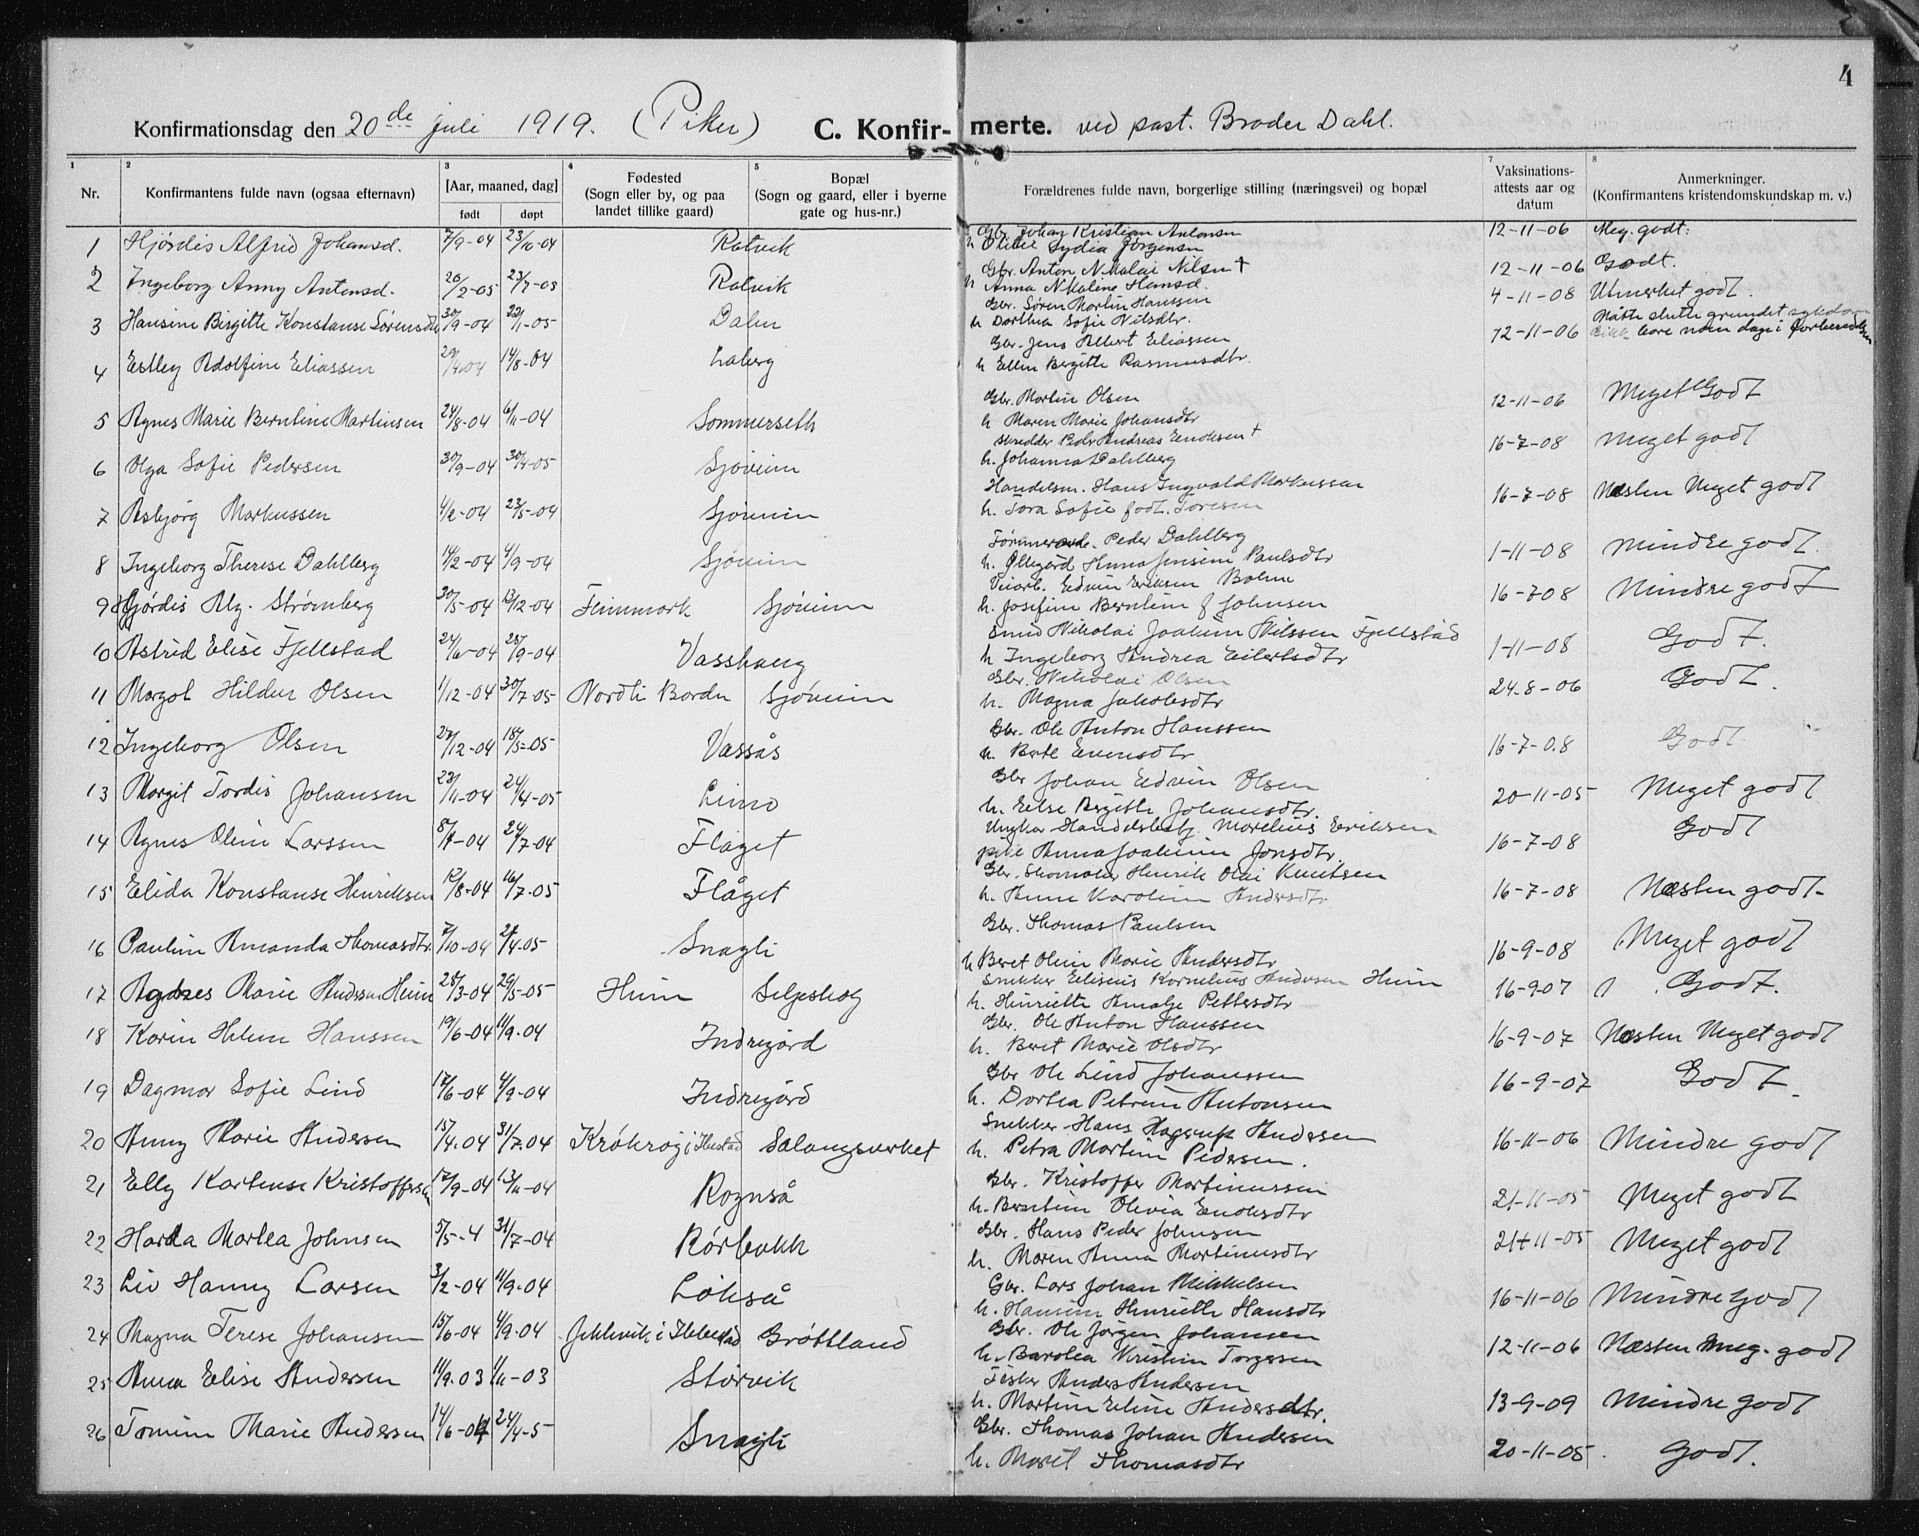 4
Konfirmationsdag den 20de juli 1919. (Piker) C. Konfir- merte. ved past. Broder Dahl.
1 2 3 4 5 6 7 8
Nr. Konfirmantens fulde navn (ogsaa efternavn) [Aar, maaned, dag] født døpt Fødested (Sogn eller by, og paa landet tillike gaard) Bopæl (Sogn og gaard, eller i byerne gate og hus-nr.) Forældrenes fulde navn, borgerlige stilling (næringsvei) og bopæl Vaksinations-attests aar og datum Anmerkninger. (Konfirmantens kristendomskundskap m. v.)
1 Hjørdis Alfrid Johansd. 7/9-04 23/10-04 Rotvik Gbr. Johan Kristian Antonsen 12-11-06 Meg. godt.
h. Lydia Jørgensen
2 Ingeborg Anny Antonsd. 20/2-05 23/7-05 Rotvik Gbr. Anton Nikolai Nilsen † 12-11-06 Godt.
h. Anna Nikoline Hansd.
3 Hansine Birgitte Konstanse Sørensdtr 30/9-04 22/1-05 Dalen Gbr. Søren Martin Hanssen 4-11-08 Utmerket godt.
h. Dorthea Sofie Nilsdtr.
4 Estley Adolfine Eliassen 29/4-04 14/8-04 Laberg Gbr. Jens Albert Eliassen 12-11-06 Måtte slutte grundet sykdom bare noen dage i
h. Ellen Bergitte Rasmusdtr
5 Agnes Marie Berntine Martinsen 24/8-04 6/11-04 Sommerseth Gbr. Martin Olsen 12-11-06 Meget Godt
h. Maren Marie Johansdtr
6 Olga Sofie Pedersen 30/9-04 30/4-05 Sjøveien skredder Peder Andreas Enoksen † 16-7-08 Meget godt
h. Johanna Dahlberg
7 Asbjørg Markussen 4/2-04 23/5-04 Sjøveien Handelsm. Hans Ingvald Markussen 16-7-08 Næsten Meget godt
h. Tora Sofie født. Toresen
8 Ingeborg Therese Dahlberg 14/2-04 4/9-04 Sjøveien Peder Dahlberg 1-11-08 Mindre godt.
h. Øllegård Anna Jensine Paulsdtr
9 Hjørdis Alg. Strømberg 30/5-04 13/12-04 Finnmark Sjøveien Veiarb. Edvin Eriksen 16-7-08 Mindre godt
h. Josefine Berntine f Johnsen
10 Astrid Elise Fjellstad 24/6-04 25/9-04 Vasshaug Smed Nikolai Joakim Nilssen Fjellstad 1-11-08 Godt.
h. Ingeborg Andrea Eilertsdtr
11 Margot Hildur Olsen 1/12-04 30/7-05 Nordli Bardu Sjøveien Gbr. Nikolai Olsen 24-8-06 Godt.
h. Magna Jakobsdtr
12 Ingeborg Olsen 27/12-04 18/5-05 Vassås Gbr. Ole Anton Hanssen 16-7-08 Godt
h. Berte Evensdtr
13 Margit Tordis Johansen 23/11-04 24/4-05 Limo Gbr Johan Edvin Olsen 20-11-05 Meget godt
h. Else Bergitte Johansdtr.
14 Agnes Oline Larssen 8/4-04 24/7-04 Flåget Ungkar Handelsbetj. Marelius Eriksen 16-7-08 Godt
pike Anna Joakime Jonsdtr.
15 Elida Konstanse Henriksen 12/8-04 16/7-05 Flåget Gbr. Skomaker Henrik Olai Knutsen 16-7-08 Næsten godt-
h. Anne Karoline Andersdtr
16 Pauline Amanda Thomasdtr. 7/10-04 24/4-05 Snagli Gbr. Thomas Paulsen 16-9-08 Meget godt
h. Beret Oline Marie Andersdtr
17 Agnes Marie Andersen Heim 28/3-04 29/5-05 Heim Seljeskog Snekker Elisius Kornelius Andersen Heim 16-9-07 Godt.
h. Henriette Amalie Pettersdtr
18 Karin Helene Hanssen 19/6-04 11/9-04 Indregård Gbr. Ole Anton Hanssen 16-9-07 Næsten Meget godt
h. Beret Marie Olsdtr
19 Dagmar Sofie Lind 12/6-04 4/9-04 Indregård Gbr Ole Lind Johanssen 16-9-07 Godt.
h. Dortea Petrine Antonsen
20 Anny Marie Andersen 15/4-04 31/7-04 Krøkrog i Ibestad Salangsverket Snekker Hans Hagerup Andersen 16-11-06 Mindre godt
h. Petra Martine Pedersen.
21 Elly Kartense Kristoffersen 12/9-04 13/11-04 Rognså Gbr. Kristoffer Martinussen 21-11-05 Meget godt
h. Berntine Olivia Enoksdtr
22 Harda Martea Johnsen 5/5-4 31/7-04 Rørbakk Gbr. Hans Peder Johnsen 21-11-05 Meget godt
h. Maren Anna Martinusdtr
23 Liv Hanny Larsen 3/2-04 11/9-04 Løkså Gbr. Lars Johan Mikkelsen 16-11-06 Mindre godt
h. Hansine Henriette Hansdtr
24 Magna Terese Johansen 15/6-04 4/9-04 Jektevik i Ibbestad Grøttland Gbr. Ole Jørgen Johansen 12-11-06 Næsten meg. godt
h. Barolea Kristine Torgersen
25 Anna Elise Andersen 11/9.03 1/11-03 Storvik Fisker Anders Andersen 13-9-09 Mindre godt
h. Martine Eline Andersdtr.
26 Tomine Marie Andersen 14/6-04 24/4-5 Snagli Gbr. Thomas Johan Andersen 20-11-05 Godt.
h. Marit Thomasdtr